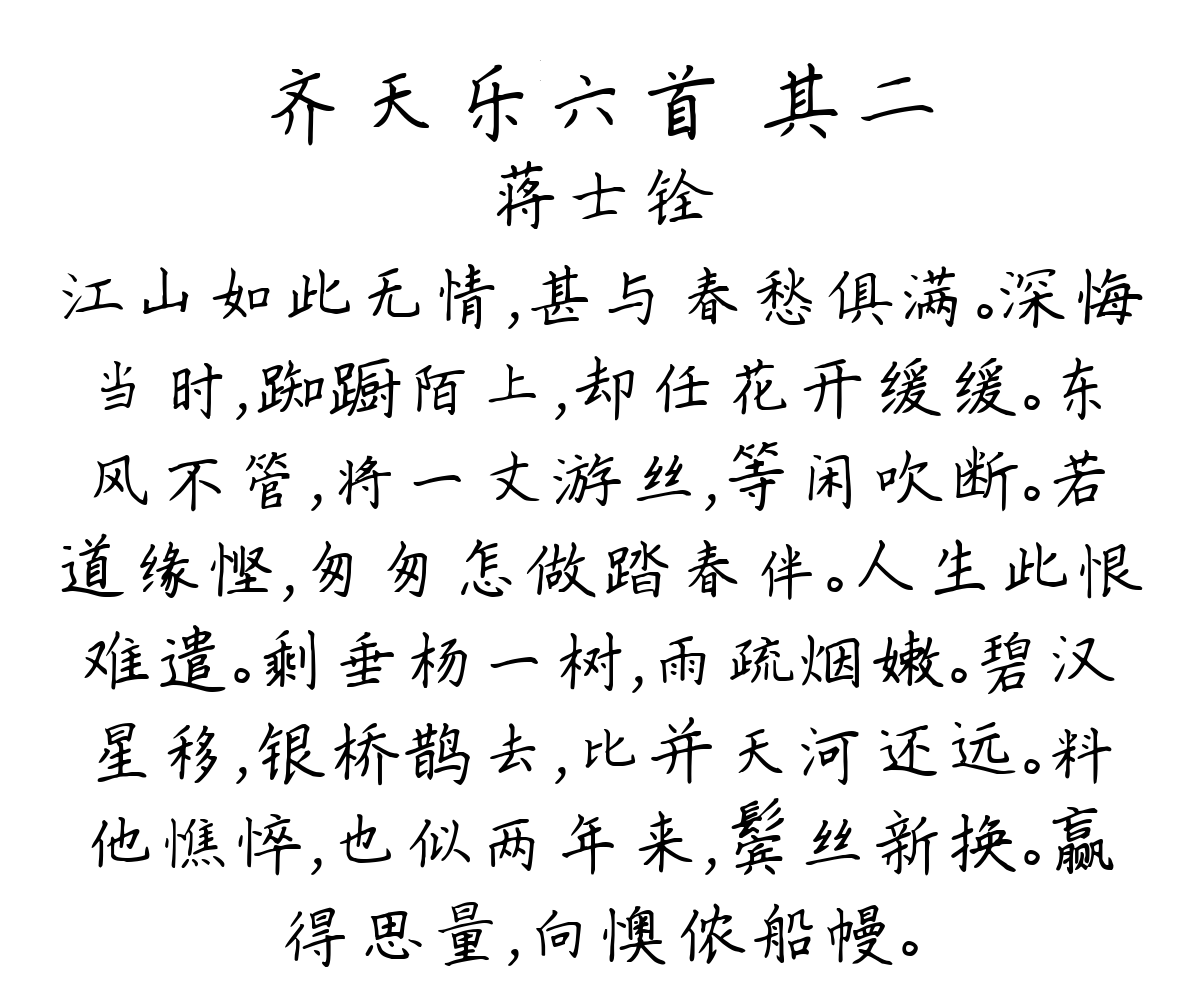 齐天乐六首 其二
蒋士铨
江山如此无情,甚与春愁俱满。深悔
当时,踟蹰陌上,却任花开缓缓。东
风不管,将一丈游丝,等闲吹断。若
道缘悭,匆匆怎做踏春伴。人生此恨
难遣。剩垂杨一树,雨疏烟嫩。碧汉
星移,银桥鹊去,比并天河还远。料
他憔悴,也似两年来,鬓丝新换。赢
得思量,向懊侬船幔。